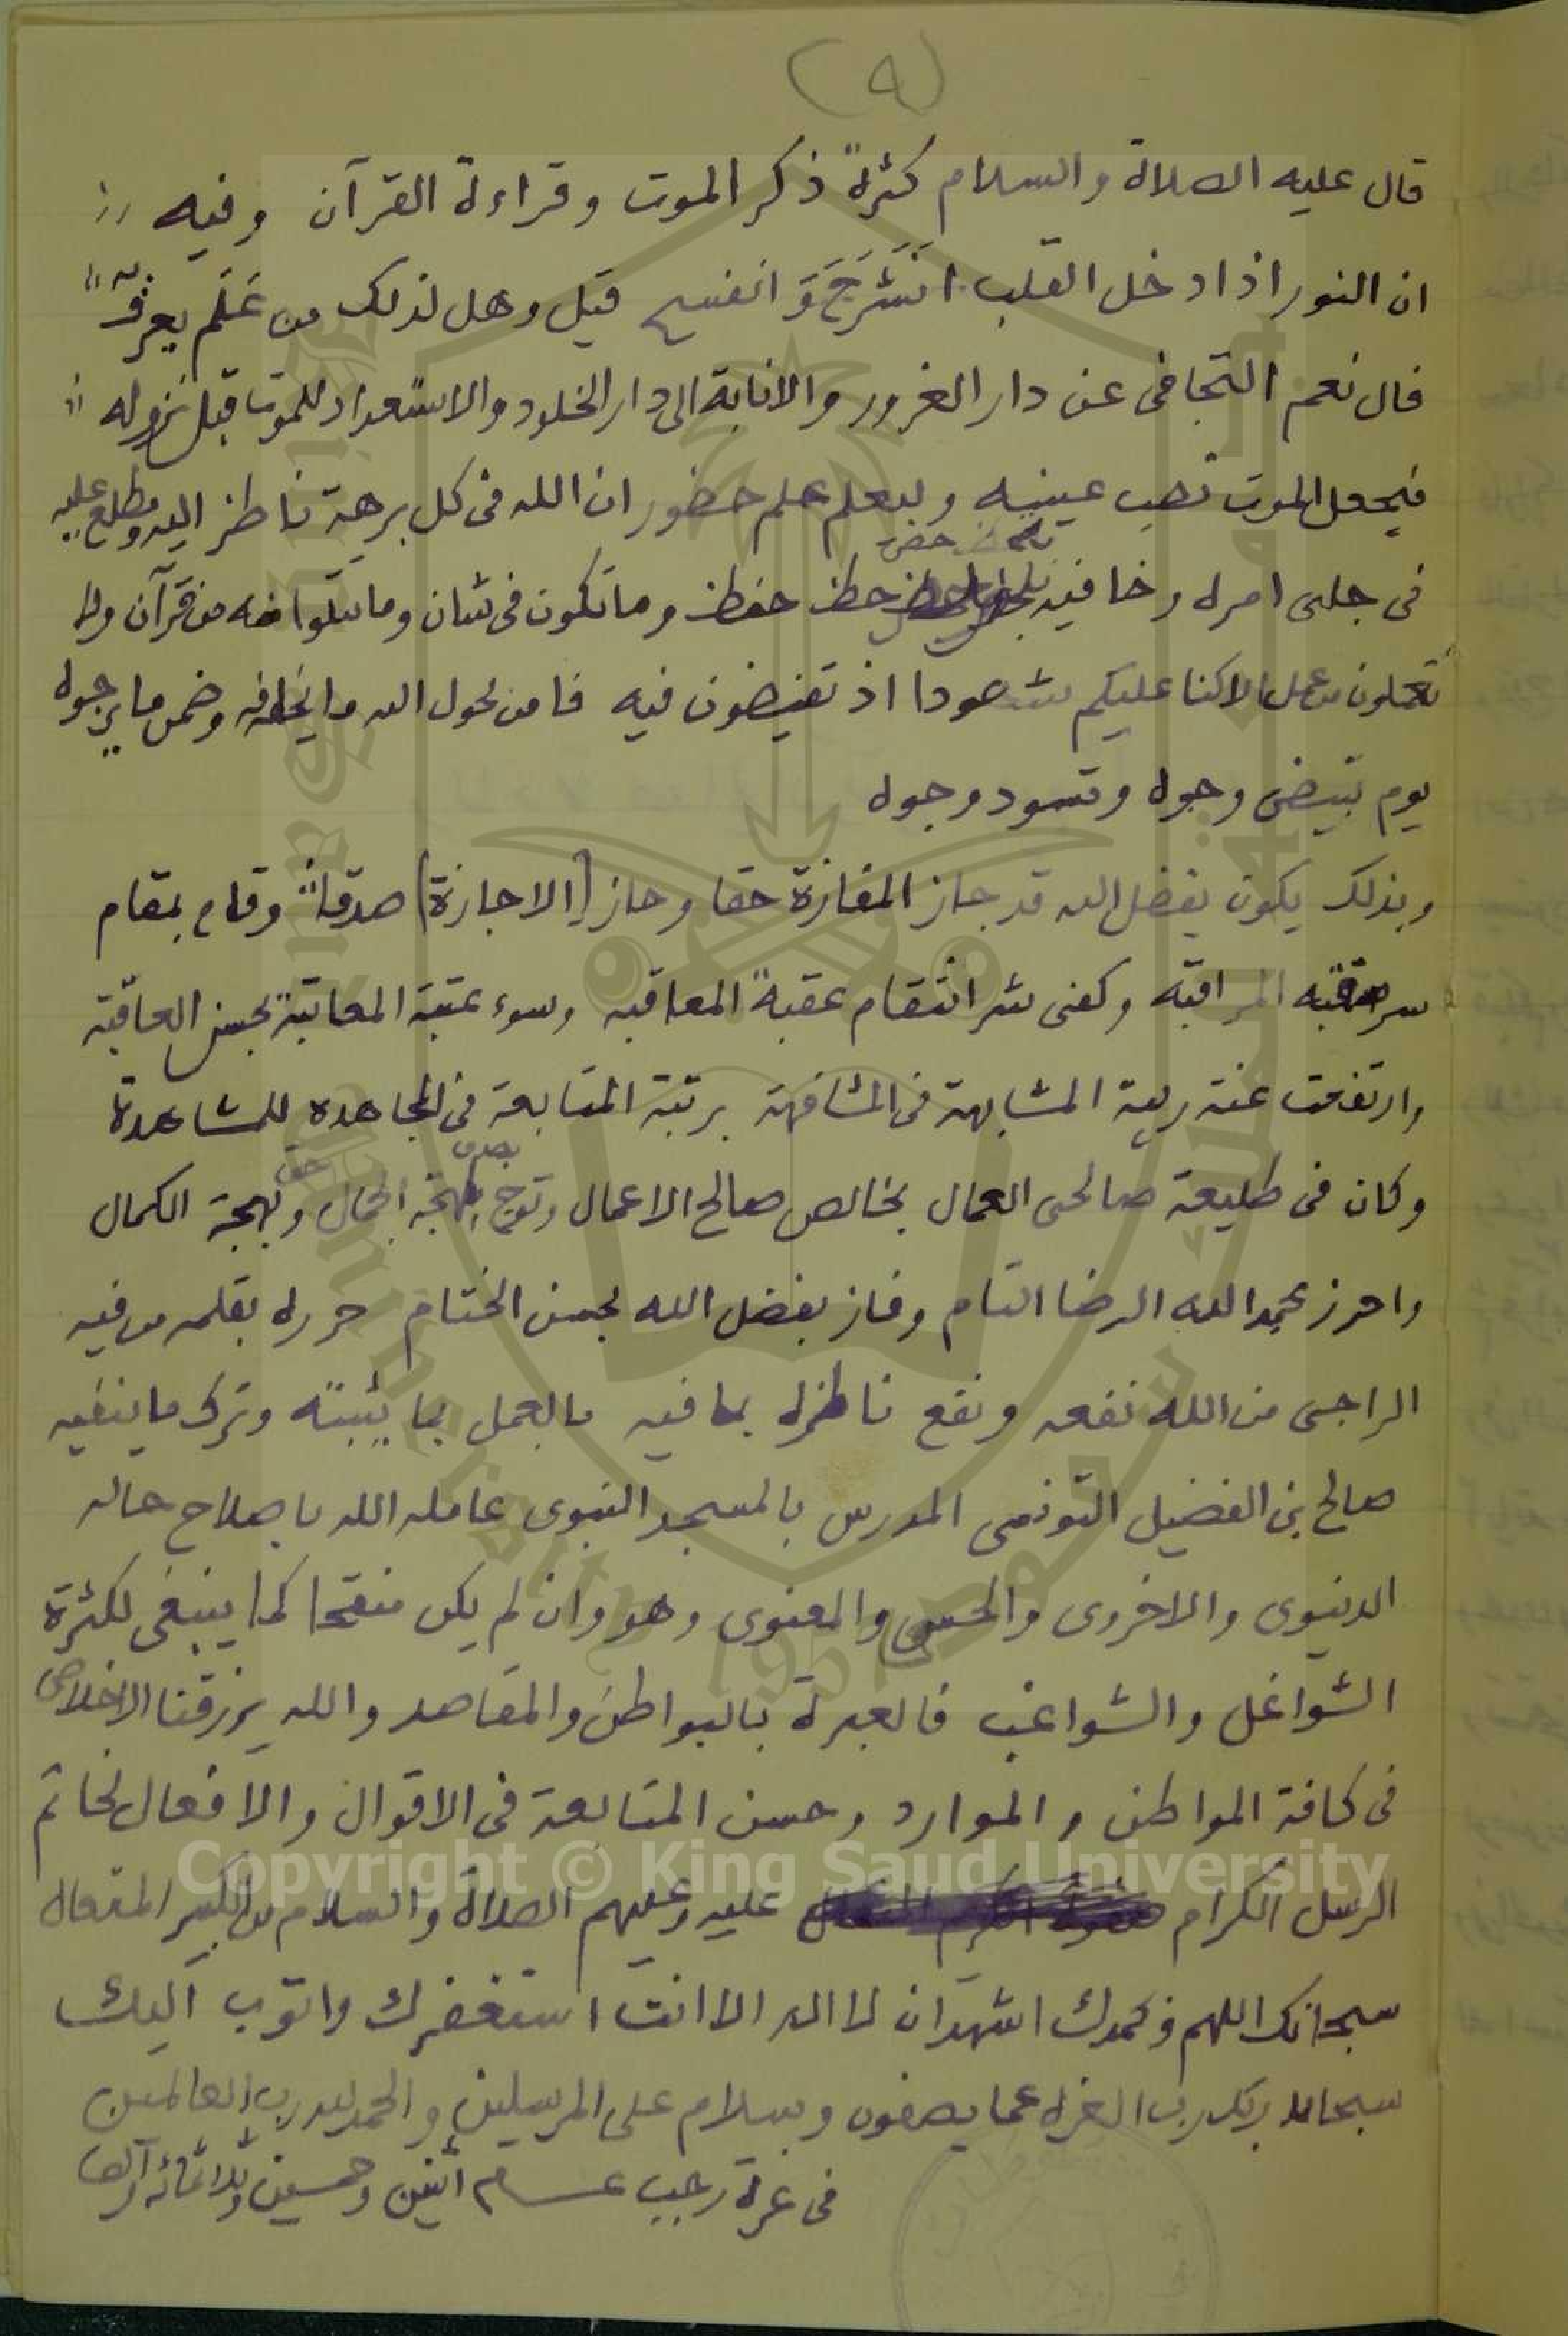 (٩)
قال عليه الصلاة والسلام كثرة ذكر الموت وقراءة القرآن وفيه
ان النور اذا دخل القلب انشرح وَانفسح قيل وهل لذلك من عَلَم يعرّفه
قال نعم التجافى عن دار الغرور والانابة الى دار الخلود والاستعداد للموت قبل نزوله
فيجعل الموت نصب عينيه وليعلم علم حضور ان الله فى كل برهة ناظر اليه ومطلع عليه
فى جلى امره وخافيه حفظ وما تكون فى شان وما تتلوا منه من قرآن ولا
تعملون من عمل الا كنا عليكم شهودا اذ تفيضون فيه فامن لحول الله مايخافه وضمن ما يرجوه
يوم تبيض وجوه وتسود وجوه
وبذلك يكون بفضل الله قد جاز المفازة حقا وحاز (الاجازة) صدقاً وقام بمقام
المراقبة وكفى شر انتقام عقبة المعاقبه وسوء عتبة المعاتبة بحسن العاقبة
وارتفعت عنه ريبة المشابهة فى المشافهة برتبة المتابعة فى المجاهده للمشاهدة
وكان فى طليعة صالحى العمال بخالص صالح الاعمال وتوج بصدق لهجة الجمال وبهجة الكمال
واحرز بحمد الله الرضا التام وفاز بفضل الله بحسن الختام حرره بقلمه من فيه
الراجى من الله نفعه ونفع ناظره بما فيه بالعمل بما يثبته وترك ما ينفيه
صالح بن الفضيل التونسى المدرس بالمسجد النبوى عامله الله باصلاح حاله
الدنيوى والاخروى والحسى والمعنوى وهو وان لم يكن منقحا كما ينبغى لكثرة
الشواغل والشواغب فالعبرة بالبواطن والمقاصد والله يرزقنا الاخلاص
فى كافة المواطن والموارد وحسن المتابعة فى الاقوال والافعال لخاتم
الرسل الكرام عليه وعليهم الصلاة والسلام من الكبير المتعال
سبحانك اللهم وبحمدك اشهد ان لا اله الا انت استغفرك واتوب اليك
سبحان ربك رب العزه عما يصفون وسلام على المرسلين والحمد لله رب العالمين
فى غرة رجب عام اثنين وخمسين وثلاثمائه والف
Copyright © King Saud University
1957